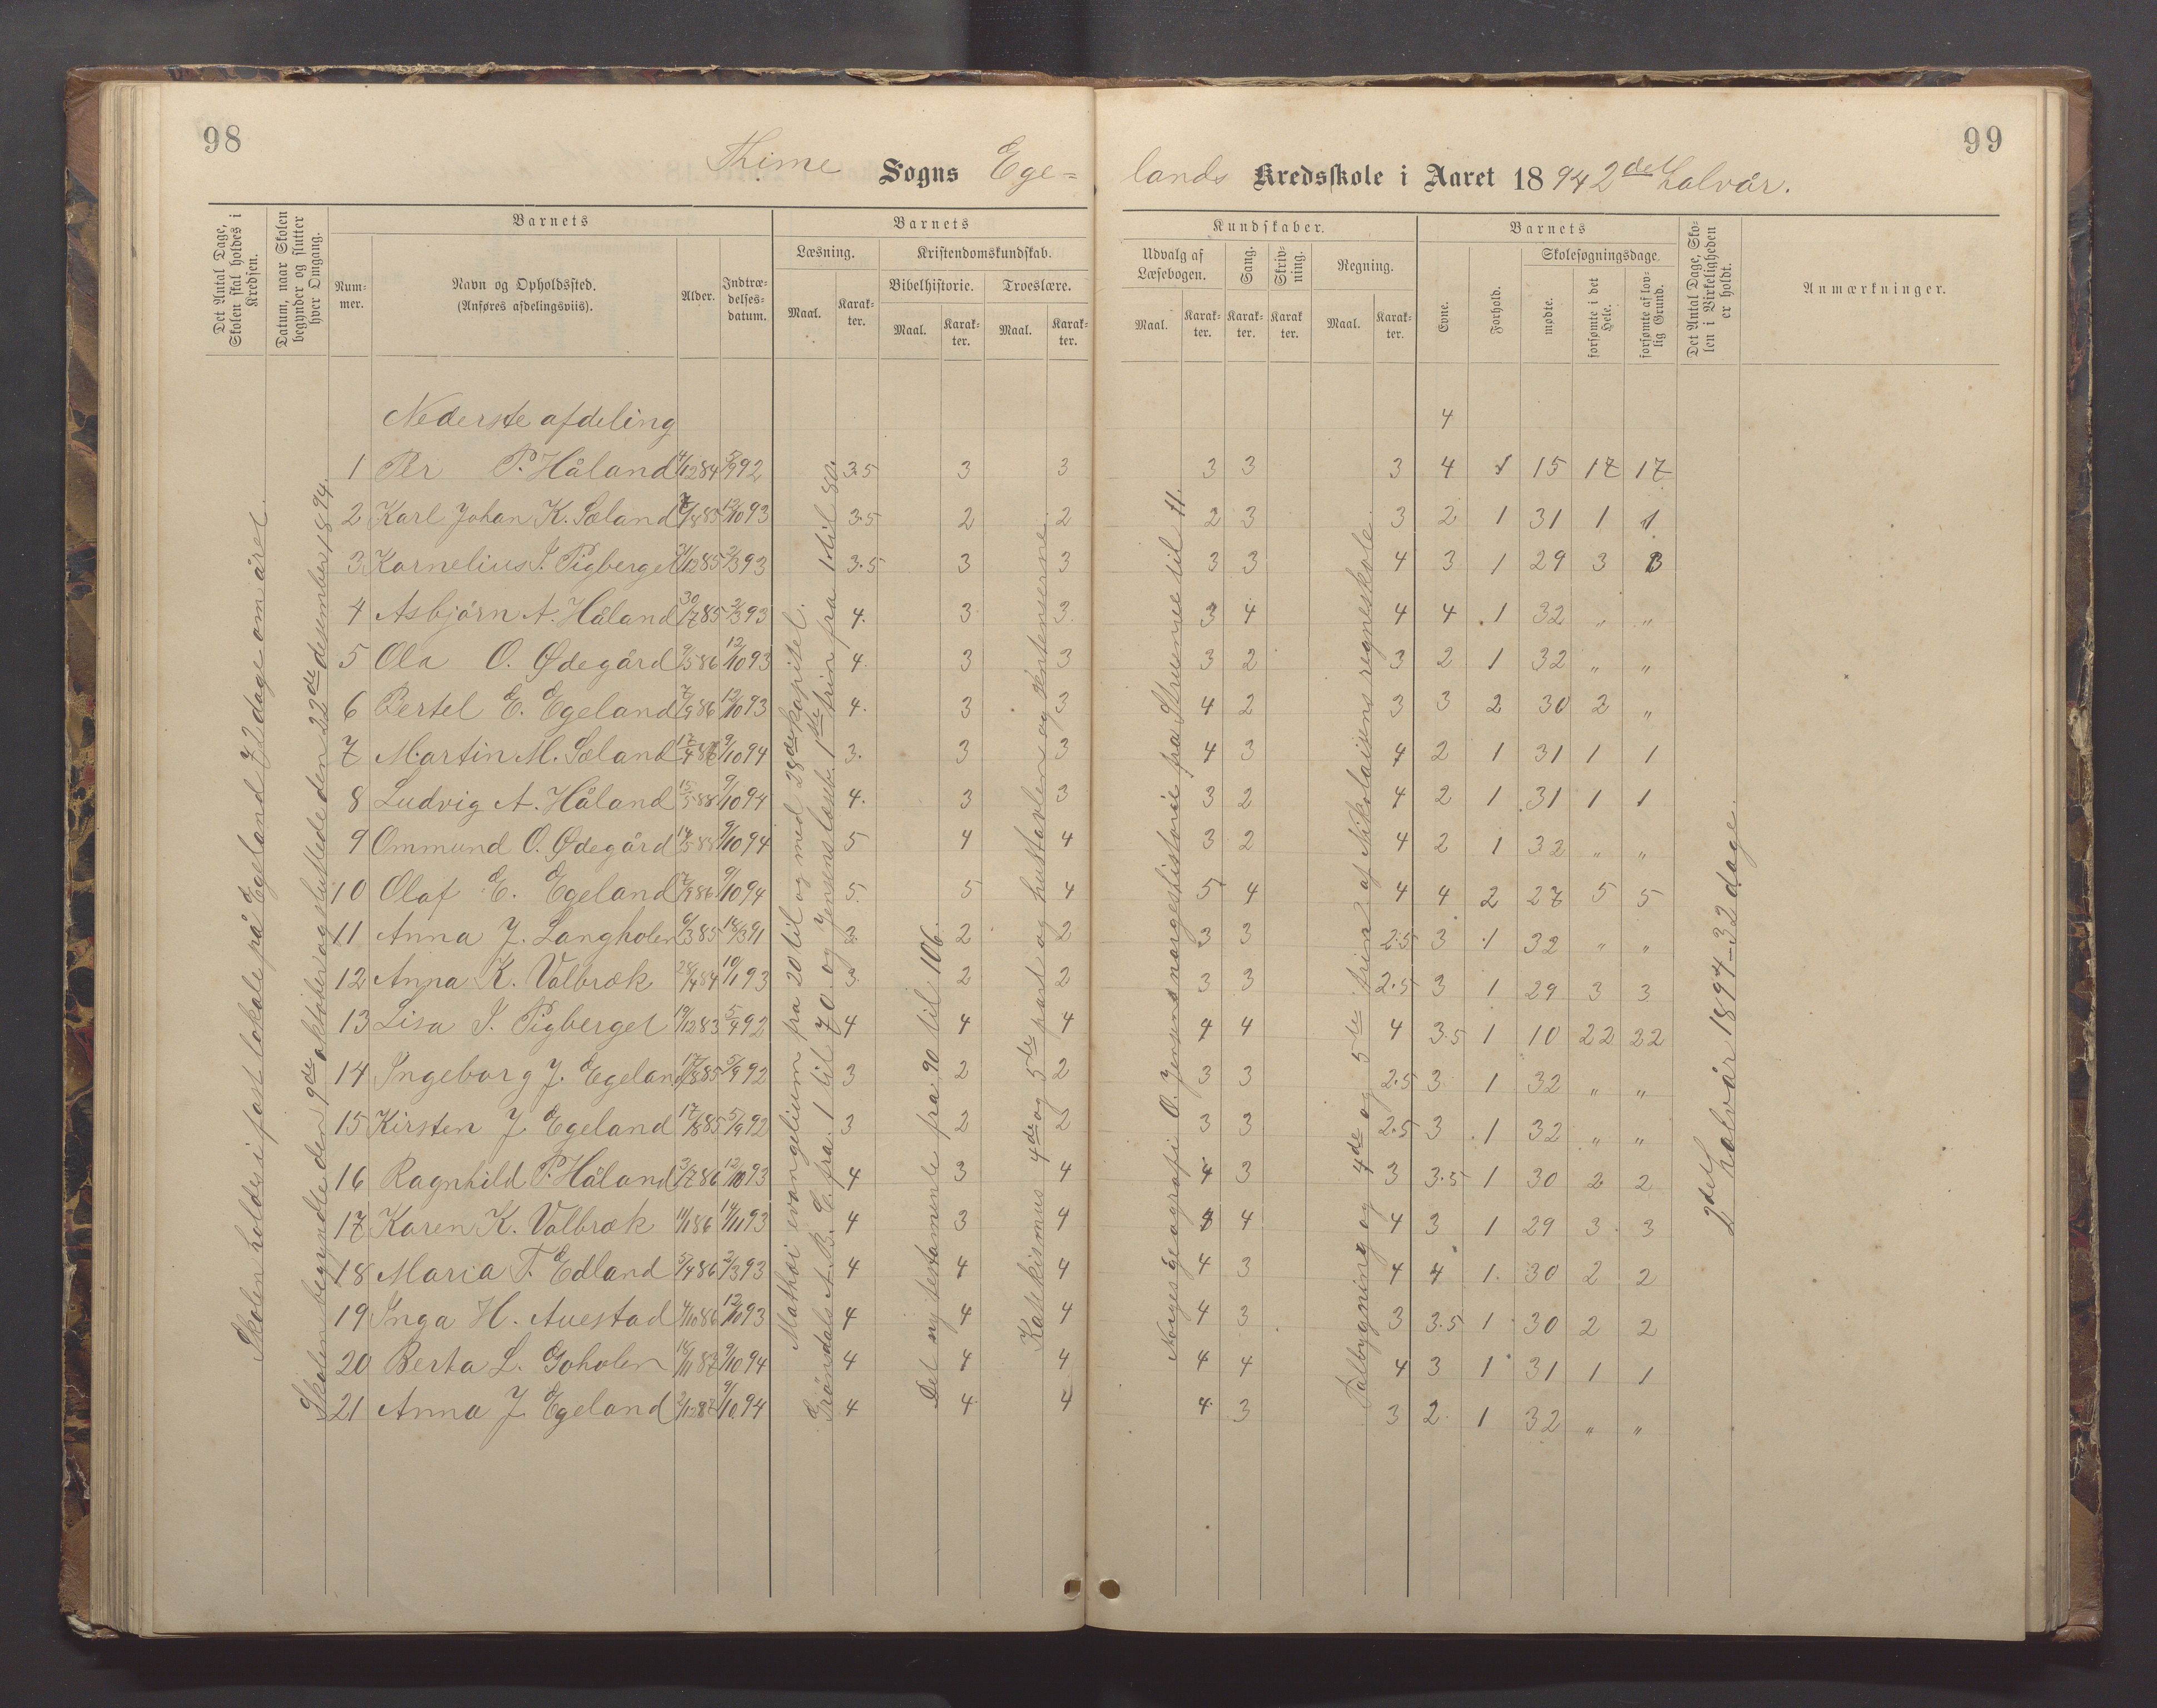 98
99
Thime Sogns Ege=
lands Kredsskole i Aaret 1894 2det halvår.
Det Antal Dage, Skolen skal holdes i Kredsen.
Datum, naar Skolen begynder og slutter hver Omgang.
Barnets
Nummer.
Navn og Opholdssted.
(Anføres afdelingsviis).
Alder.
Indtrædelsesdatum.
Barnets
Læsning.
Maal.
Karakter.
Kristendomskundskab.
Bibelhistorie.
Maal.
Karakter.
Troeslære.
Maal.
Karakter.
Kundskaber.
Udvalg af Læsebogen.
Maal.
Karakter.
Sang.
Karakter.
Skrivning.
Karakter.
Regning.
Maal.
Karakter.
Barnets
Evne.
Forhold.
Skolesøgningsdage.
mødte.
forsømte i det Hele.
forsømte af lovlig Grund.
Det Antal Dage, Skolen i Virkeligheden er holdt.
Anmærkninger.
Skolen holdes i fast lokale på Egeland 72 dage om året.
Skolen begyndte den 9de oktober og sluttede den 22de desember 1894.
Mathæi evangelium fra 20 til og med 28de kapitel.
Grøndals A.B.C. fra 1 til 70 og Jensens læseb. 1ste trin fra 1 til 80.
Det ny testamente fra 90 til 106.
Katekismus 4de og 5te part og hustavlen og sentenserne.
Norges geografi O. Jensens norgeshistorie fra Struense til 11.
Talbygning og 4de og 5te trin 2 af Nikolaisens regneskole.
2det halvår 1894 – 32 dage.
Nederste afdeling 4
1 Per P. Håland 4/12 84 5/9 92 3.5 3 3 3 3 3 4 1 15 17 17
2 Karl Johan K. Sæland 7/8 85 12/10 93 3.5 2 2 2 3 3 2 1 31 1 1
3 Kornelius J. Pigberget 21/12 85 2/3 93 3.5 3 3 3 3 4 3 1 29 3 3
4 Asbjørn A. Håland 30/7 85 2/3 93 4. 3 3 3 4 4 4 1 32 " "
5 Ola O. Ødegård 9/5 86 12/10 93 4. 3 3 3 2 3 2 1 32 " "
6 Bertel E. Egeland 7/9 86 12/10 93 4. 3 3 4 2 3 3 2 30 2 "
7 Martin M. Sæland 17/4 87 9/10 94 3. 3 3 4 3 4 2 1 31 1 1
8 Ludvig A. Håland 15/5 88 9/10 94 4. 3 3 3 2 4 2 1 31 1 1
9 Ommund O. Ødegård 14/5 88 9/10 94 5 4 4 3 2 4 2 1 32 " "
10 Olaf E. Egeland 7/9 86 9/10 94 5. 5 4 5 4 4 4 2 27 5 5
11 Anna J. Langholen 6/3 85 18/3 91 3. 2 2 3 3 2.5 3 1 32 " "
12 Anna K. Valbræk 28/4 84 10/1 93 3. 2 2 3 3 2.5 3 1 29 3 3
13 Lisa J. Pigberget 19/12 83 5/4 92 4 4 4 4 4 4 3.5 1 10 22 22
14 Ingeborg J. Egeland 17/8 85 5/9 92 3 2 2 3 3 2.5 3 1 32 " "
15 Kirsten J. Egeland 17/8 85 5/9 92 3 2 2 3 3 2.5 3 1 32 " "
16 Ragnhild P. Håland 3/7 86 12/10 93 4 3 4 4 3 3 3.5 1 30 2 2
17 Karen K. Valbræk 11/1 86 14/11 93 4 3 4 4 4 4 3 1 29 3 3
18 Maria T. Edland 5/4 86 2/3 93 4 4 4 4 3 4 4 1 30 2 2
19 Inga H. Auestad 4/10 86 12/10 93 4 4 4 4 3 3 3.5 1 30 2 2
20 Berta L. Goholen 18/11 87 9/10 94 4 4 4 4 4 4 3 1 31 1 1
21 Anna J. Egeland 2/12 87 9/10 94 4 4 4 4 3 3 2 1 32 " "